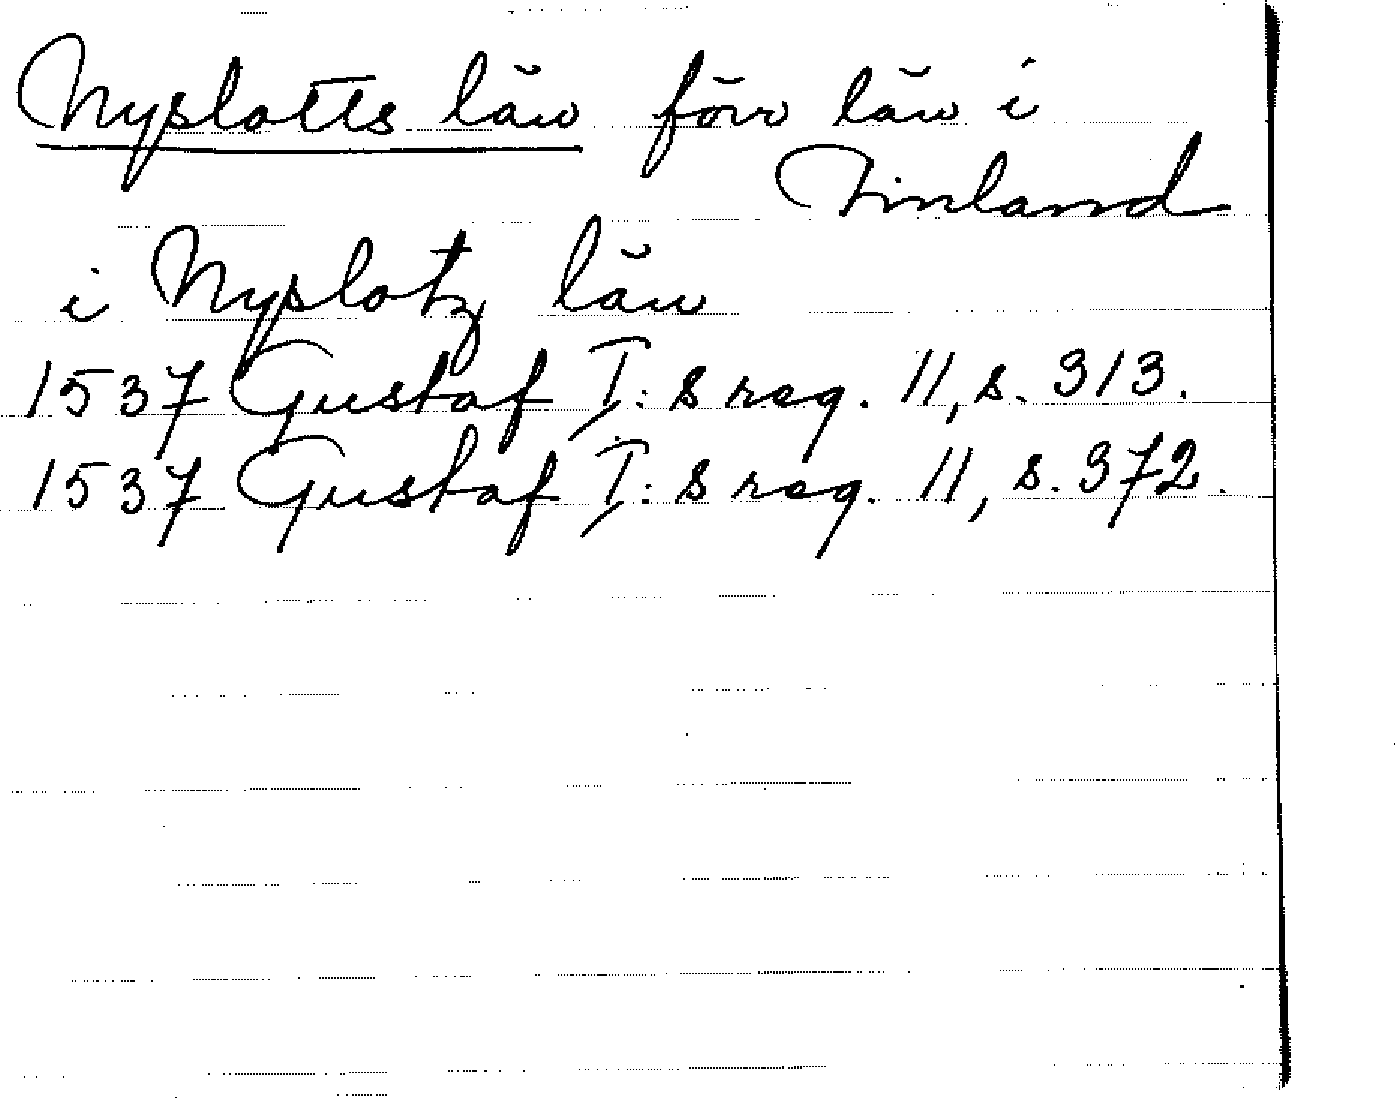 Nyslotts län förr län i
Finland
i Nyslotz län
1537 Gustaf I:s reg. 11, s. 313.
1537 Gustaf I:s reg. 11, s. 372.